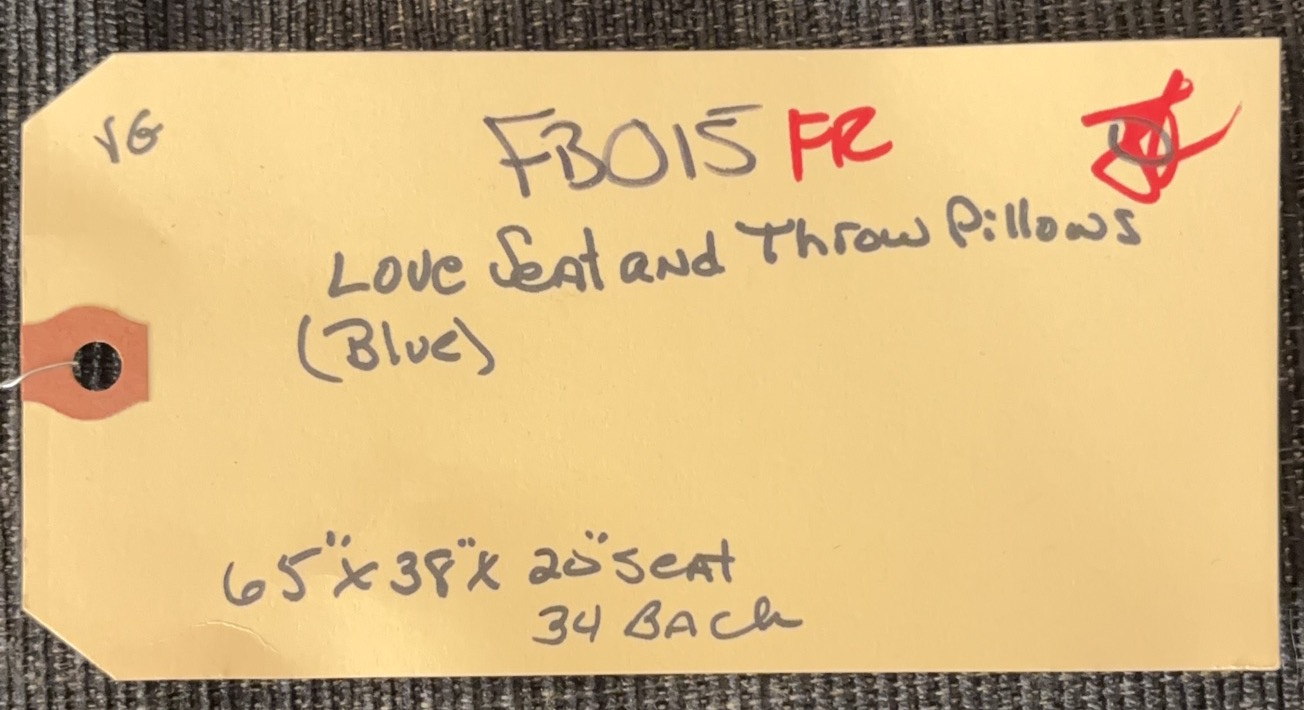 VG
FB015 FR
Love Seat and Throw Pillows
(Blue)
65" x 38" x 20" seat
34 Back